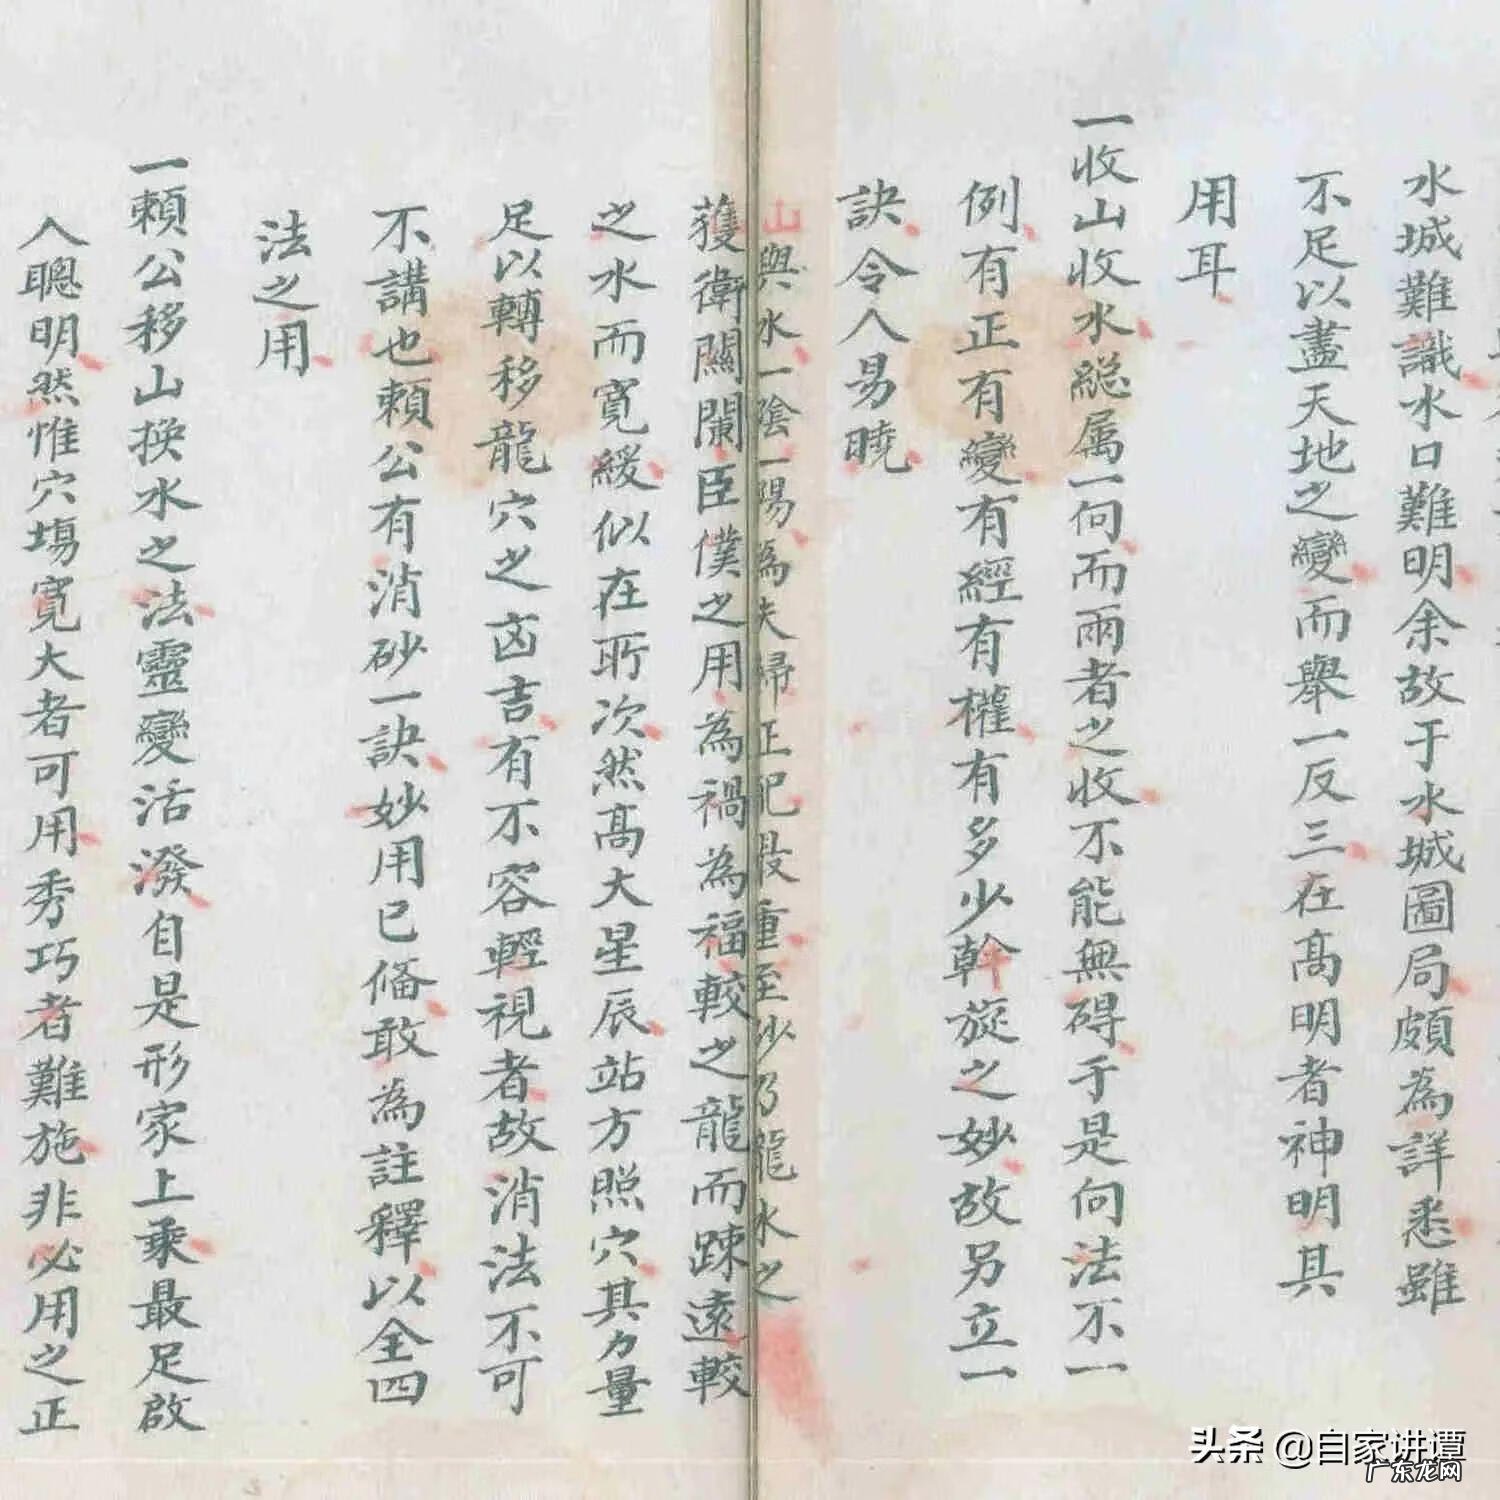 水城難識水口難明余故于水城圖局頗為詳悉雖
不足以盡天地之變而舉一反三在髙明者神明其
用耳
一收山收水総属一向而兩者之收不能無碍于是向法不一
例有正有變有經有權有多少幹旋之妙故另立一
訣令人易曉
山與水一陰一陽為夫婦正配最重至砂乃龍水之
䕶衛關闌臣僕之用為禍為福較之龍而踈遠較
之水而寛緩似在所次然髙大星辰站方照穴其力量
足以轉移龍穴之凶吉有不容輕視者故消法不可
不講也頼公有消砂一訣妙用已俻敢為註釋以全四
法之用
一頼公移山换水之法靈變活潑自是形家上乘最足啟
人聰明然惟穴塲寛大者可用秀巧者難施非必用之正
头条 @自家讲谭
广东龙网